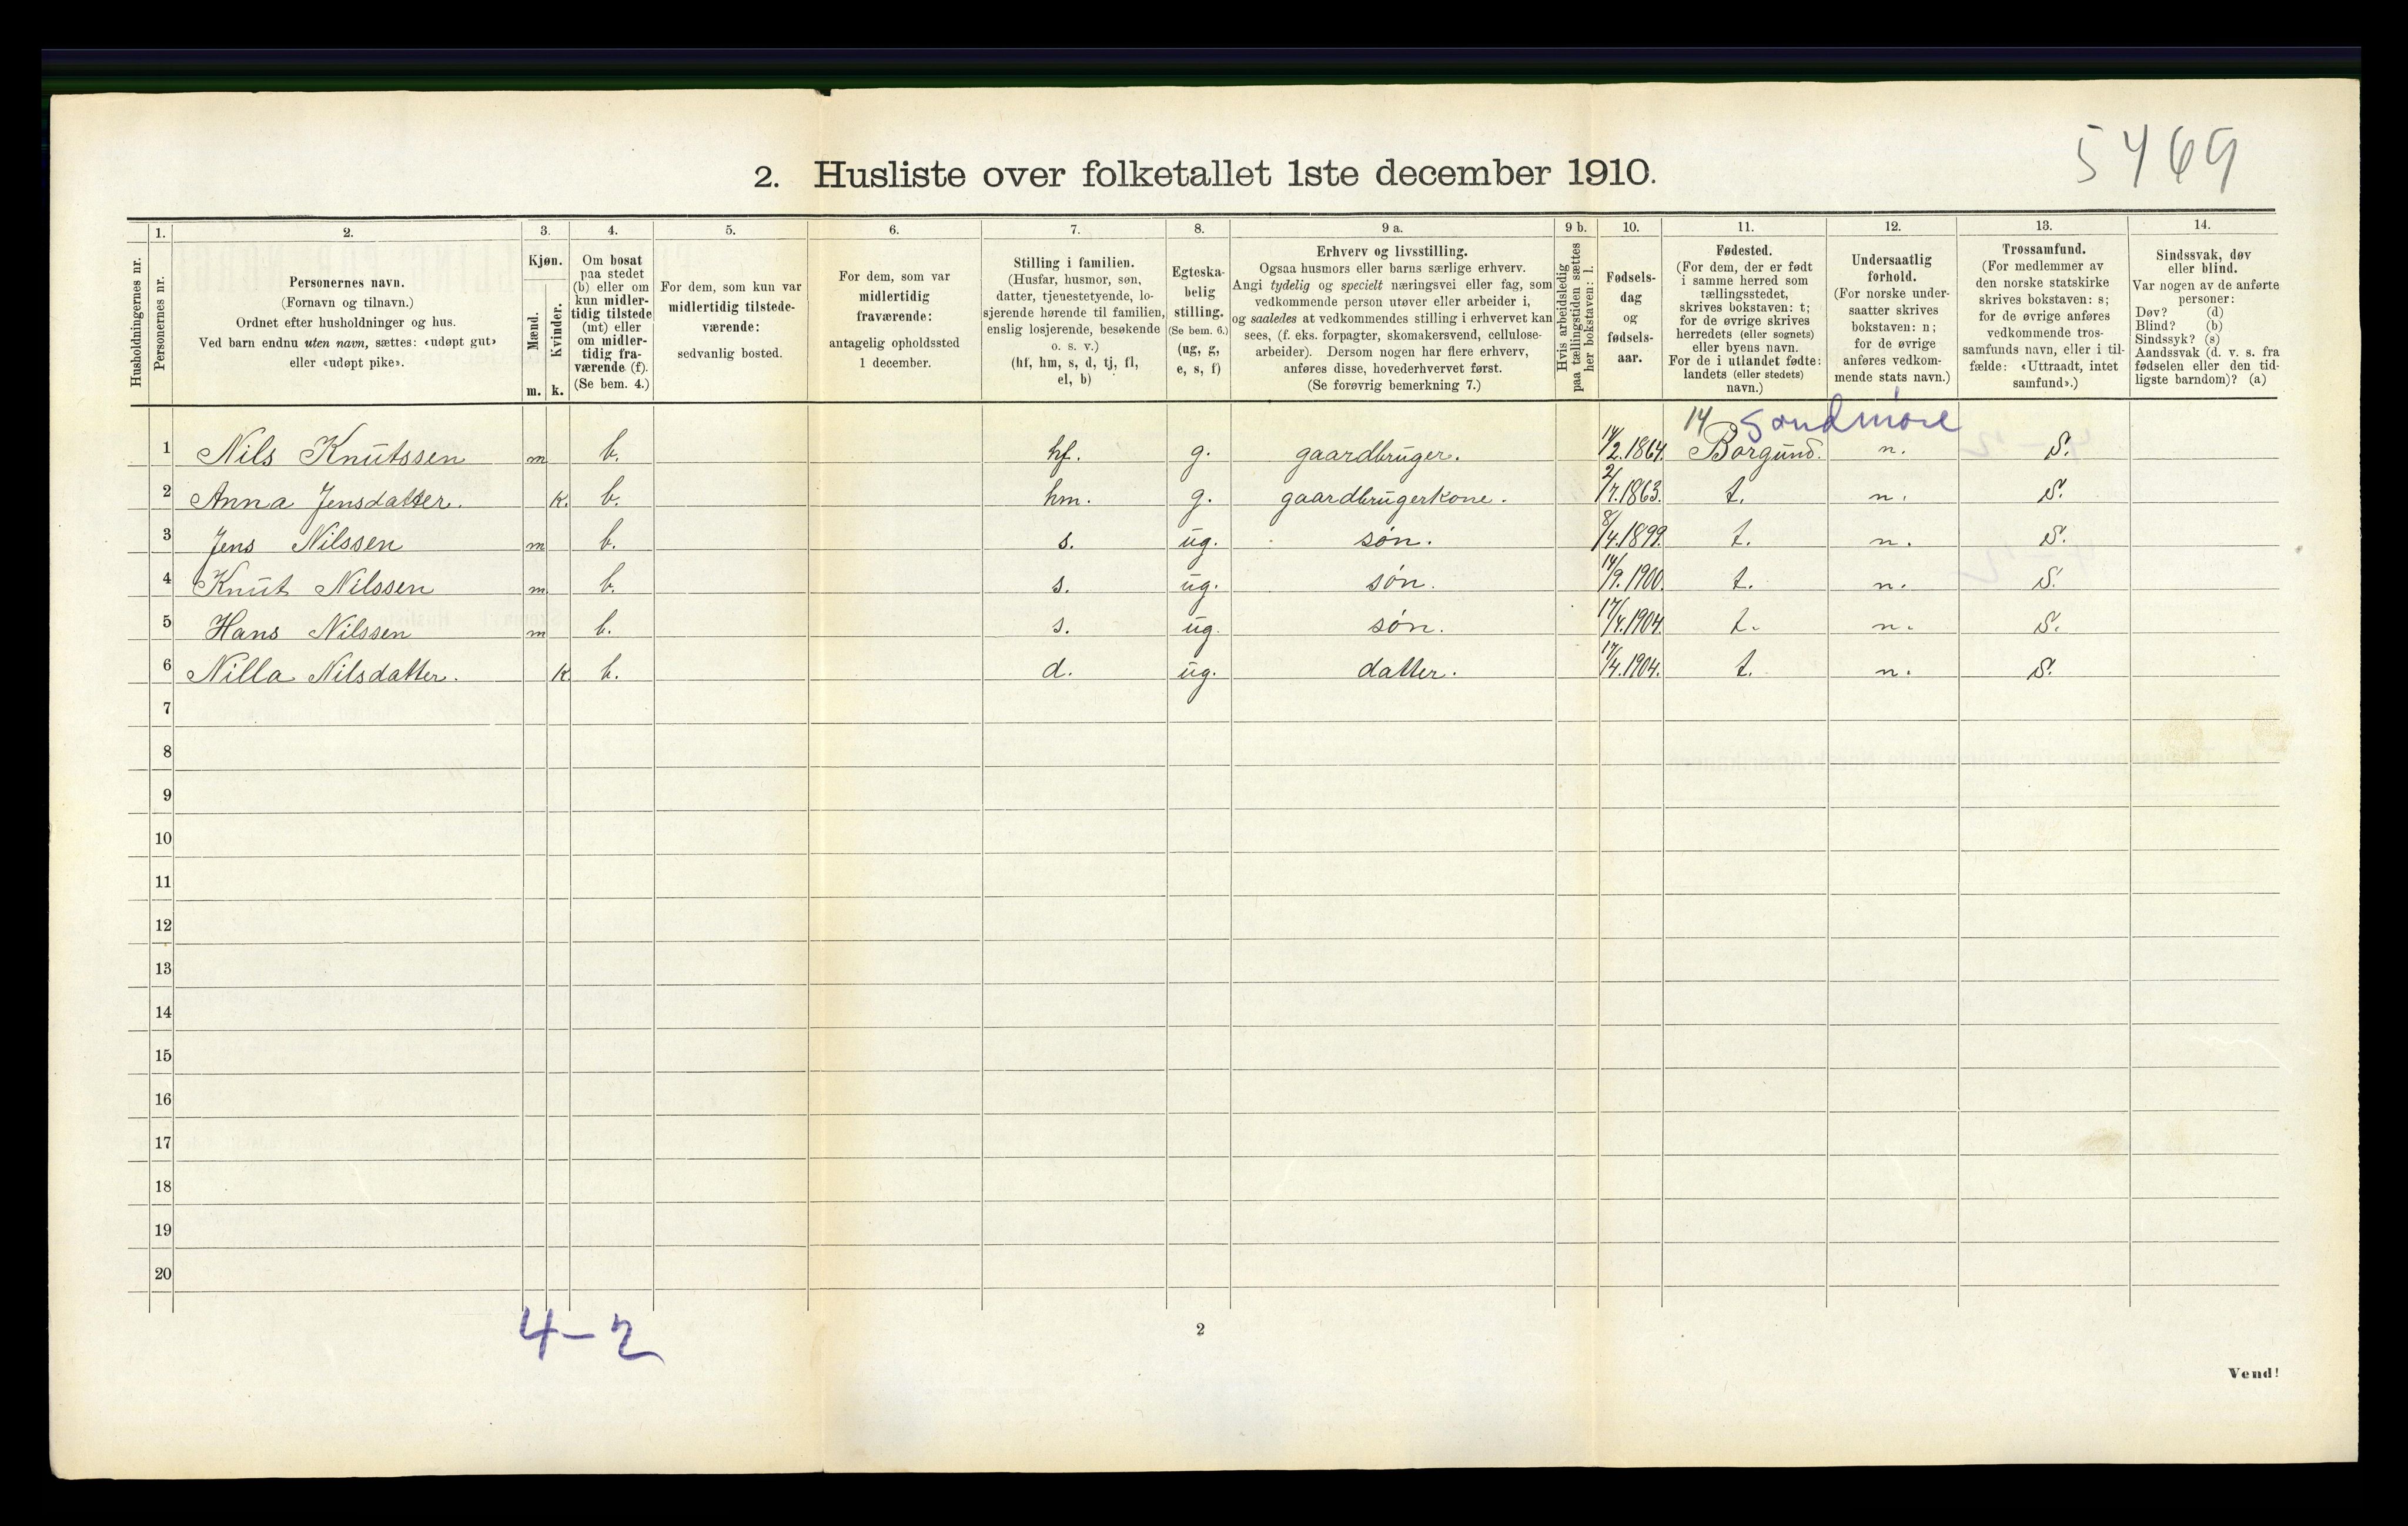 5469
2. Husliste over folketallet 1ste december 1910.
1. 2. 3. 4. 5. 6. 7. 8. 9 a. 9 b. 10. 11. 12. 13. 14.
Husholdningernes nr.
Personernes nr.
Personernes navn.
(Fornavn og tilnavn.)
Ordnet efter husholdninger og hus.
Ved barn endnu uten navn, sættes: «udøpt gut»
eller «udøpt pike».
Kjøn.
Mænd.
Kvinder.
m. k.
Om bosat
paa stedet
(b) eller om
kun midler-
tidig tilstede
(mt) eller
om midler-
tidig fra-
værende (f).
(Se bem. 4.)
For dem, som kun var
midlertidig tilstede-
værende:
sedvanlig bosted.
For dem, som var
midlertidig
fraværende:
antagelig opholdssted
1 december.
Stilling i familien.
(Husfar, husmor, søn,
datter, tjenestetyende, lo-
sjerende hørende til familien,
enslig losjerende, besøkende
o. s. v.)
(hf, hm, s, d, tj, fl,
el, b)
Egteska-
belig
stilling.
(Se bem. 6.)
(ug, g,
e, s, f)
Erhverv og livsstilling.
Ogsaa husmors eller barns særlige erhverv.
Angi tydelig og specielt næringsvei eller fag, som
vedkommende person utøver eller arbeider i,
og saaledes at vedkommendes stilling i erhvervet kan
sees, (f. eks. forpagter, skomakersvend, cellulose-
arbeider). Dersom nogen har flere erhverv,
anføres disse, hovederhvervet først.
(Se forøvrig bemerkning 7.)
Hvis arbeidsledig
paa tællingstiden sættes
her bokstaven: l.
Fødsels-
dag
og
fødsels-
aar.
Fødested.
(For dem, der er født
i samme herred som
tællingsstedet,
skrives bokstaven: t;
for de øvrige skrives
herredets (eller sognets)
eller byens navn.
For de i utlandet fødte:
landets (eller stedets)
navn.)
Undersaatlig
forhold.
(For norske under-
saatter skrives
bokstaven: n;
for de øvrige
anføres vedkom-
mende stats navn.)
Trossamfund.
(For medlemmer av
den norske statskirke
skrives bokstaven: s;
for de øvrige anføres
vedkommende tros-
samfunds navn, eller i til-
fælde: «Uttraadt, intet
samfund».)
Sindssvak, døv
eller blind.
Var nogen av de anførte
personer:
Døv? (d)
Blind? (b)
Sindssyk? (s)
Aandssvak (d. v. s. fra
fødselen eller den tid-
ligste barndom)? (a)
14 Søndmøre
1 Nils Knutssen m b. hf. g. gaardbruger. 14/2.1864. Borgund. n. S.
2 Anna Jensdatter. k. b. hm. g. gaardbrugerkone. 2/7.1863. t. n. S.
3 Jens Nilssen m b. s. ug. søn. 8/4.1899. t. n. S.
4 Knut Nilssen m b. s. ug. søn. 14/9.1900. t. n. S.
5 Hans Nilssen m b. s. ug. søn. 17/4.1904. t. n. S.
6 Nilla Nilsdatter. k b. d. ug. datter. 17/4.1904. t. n. S.
7
8
9
10
11
12
13
14
15
16
17
18
19
20
4-2
2
Vend!